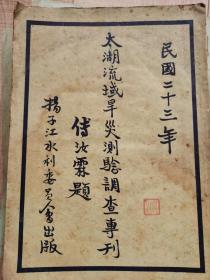 民國二十三年
太湖流域旱災測驗調查專刊
傅汝霖題
揚子江水利委員會出版